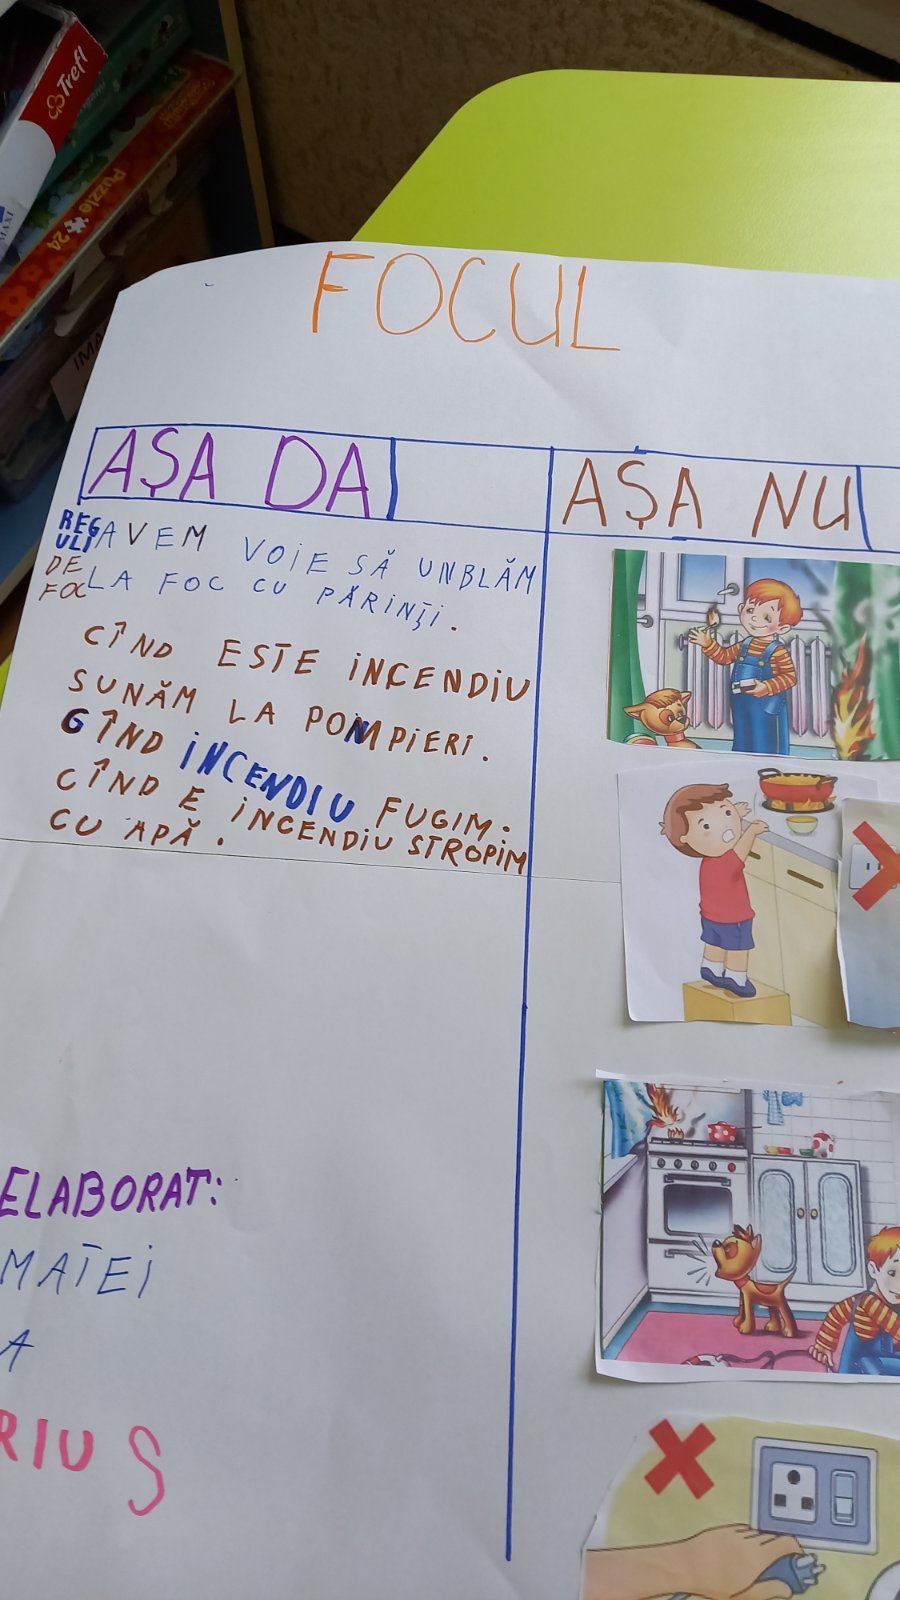 Trefl
MAXI
Puzzle 24
IMA
FOCUL
AȘA DA
AȘA NU
REG
ULI
DE
FOC
AVEM VOIE SĂ UNBLĂM
LA FOC CU PĂRINȚI.
CÎND ESTE INCENDIU
SUNĂM LA POMPIERI.
GÎND INCENDIU FUGIM.
CÎND E INCENDIU STROPIM
CU APĂ.
ELABORAT:
MATEI
A
RIUS